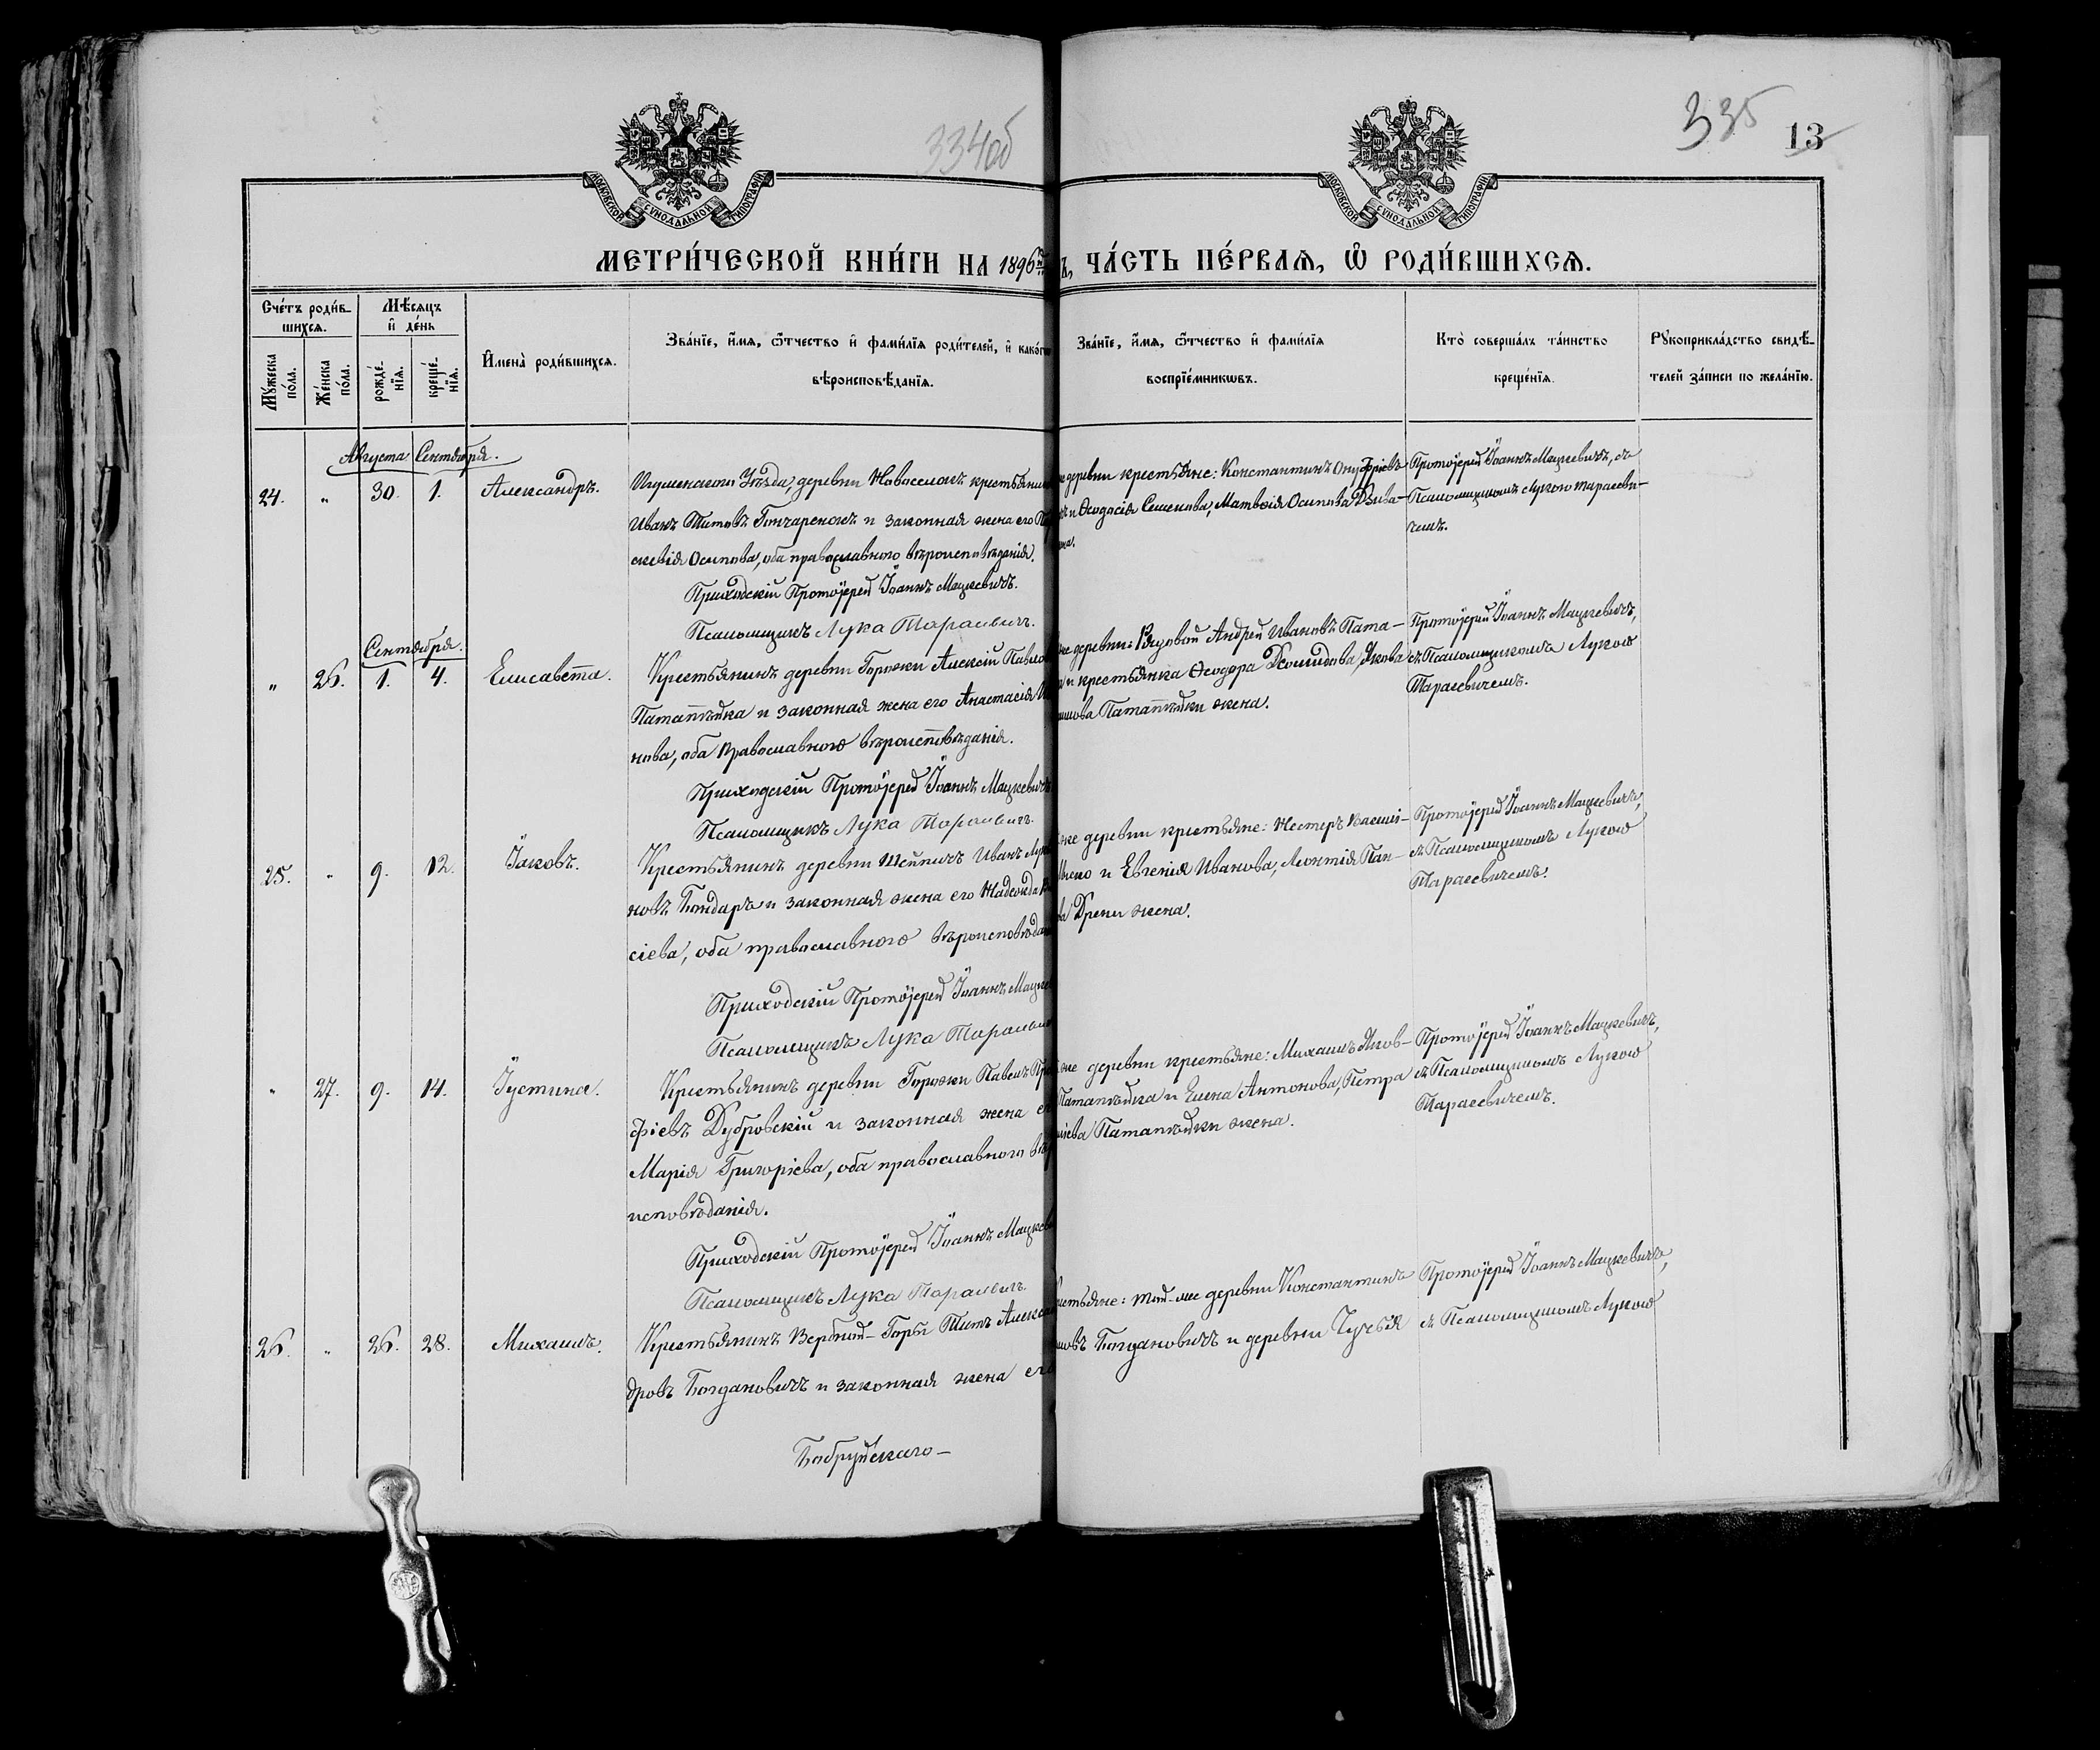 334об
335
13
МОСКОВСКОЙ СѴНОДАЛЬНОЙ ТИПОГРАФІИ
МОСКОВСКОЙ СѴНОДАЛЬНОЙ ТИПОГРАФІИ
МЕТРИ́ЧЕСКОЙ КНИ́ГИ НА 1896
Ъ, ЧА́СТЬ ПЕ́РВАѦ, Ѽ РОДИ́ВШИХСѦ.
Сче́тъ роди́в-
шихсѧ.
Мꙋ́жеска по́ла.
Же́нска по́ла.
Мѣ́сѧцъ и҆ де́нь
рожде́-
нїѧ.
креще́-
нїѧ.
И҆мена̀ роди́вшихсѧ.
Зва́нїе, и҆́мѧ, ѻ҆́тчество и҆ фами́лїѧ роди́телей, и҆ како́гѡ
вѣроисповѣ́данїѧ.
Зва́нїе, и҆́мѧ, ѻ҆́тчество и҆ фами́лїѧ
воспрїе́мникѡвъ.
Кто̀ соверша́лъ та́инство
креще́нїѧ.
Рꙋкоприкла́дство свидѣ́-
телей за́писи по жела́нїю.
Августа Сентября.
24. „ 30. 1. Александръ.
Игуменскаго Уѣзда, деревни Новоселокъ крестьянинъ
Иванъ Титовъ Гончаренокъ и законная жена его
скевія Осипова, оба православнаго вѣроисповѣданія.
Приходскій Протоіерей Іоаннъ Мацкевичъ.
Псаломщикъ Лука Тарасевичъ.
деревни крестьяне: Константинъ Онуфріевъ
и Ѳеодосія Семенова, Матвѣя Осипова
жена.
Протоіерей Іоаннъ Мацкевичъ, съ
Псаломщикомъ Лукою Тарасеви-
чемъ.
Сентября.
„ 26. 1. 4. Елисавета.
Крестьянинъ деревни Горожи Алексій Павлов
Патапѣйка и законная жена его Анастасія
нова, оба Православного вѣроисповѣданія.
Приходскій Протоіерей Іоаннъ Мацкевичъ
Псаломщикъ Лука Тарасевичъ.
же деревни: Рядовой Андрей Ивановъ Пата-
и крестьянка Ѳеодора Демидова, Якова
Патапѣйки жена.
Протоіерей Іоаннъ Мацкевичъ,
съ Псаломщикомъ Лукою
Тарасевичемъ.
25. „ 9. 12. Іаковъ.
Крестьянинъ деревни Шейпичъ Иванъ
новъ Бондарь и законная жена его Надежда
сіева, оба православного вѣроисповѣдан
Приходскій Протоіерей Іоаннъ Мацкев
Псаломщикъ Лука Тарасеви
же деревни крестьяне: Нестеръ Васил-
и Евгенія Иванова, Леонтія Пан-
жена.
Протоіерей Іоаннъ Мацкевичъ,
съ Псаломщикомъ Лукою
Тарасевичемъ.
„ 27. 9. 14. Іустина.
Крестьянинъ деревни Горожи Павелъ
фіевъ Дубровскій и законная жена ег
Марія Григоріева, оба православного вѣр
исповѣданія.
Приходскій Протоіерей Іоаннъ Мацкев
Псаломщикъ Лука Тарасевичъ.
же деревни крестьяне: Михаилъ Яков-
Патапѣйка и Елена Антонова, Петра
Патапѣйки жена.
Протоіерей Іоаннъ Мацкевичъ,
съ Псаломщикомъ Лукою
Тарасевичемъ.
26. „ 26. 28. Михаилъ.
Крестьянинъ Вербной-Горы Титъ Алексан
дровъ Богдановичъ и законная жена его
Бобруйскаго-
крестьяне: той-же деревни Константинъ
Богдановичъ и деревни Чучья
Протоіерей Іоаннъ Мацкевичъ,
съ Псаломщикомъ Лукою